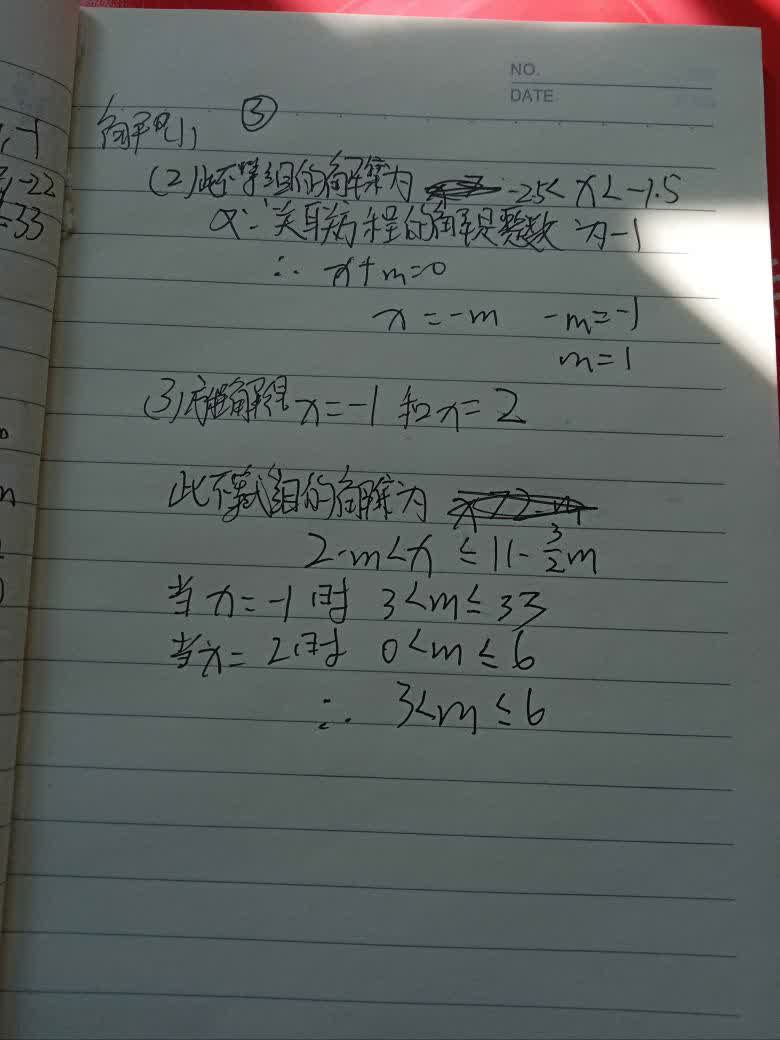 NO.
DATE
, -1
-22
=33
解: (1) ③
(2) 此不等组的解集为 -25< x < -1.5
又∵关联方程的解是整数 为 -1
∴ x+m=0
x = -m -m=-1
m=1
(3) 解得 x=-1 和 x=2
此不等式组的解集为
2-m<x ≤ 11-3/2m
当 x=-1时 3<m≤33
当 x=2时 0<m≤6
∴ 3<m≤6